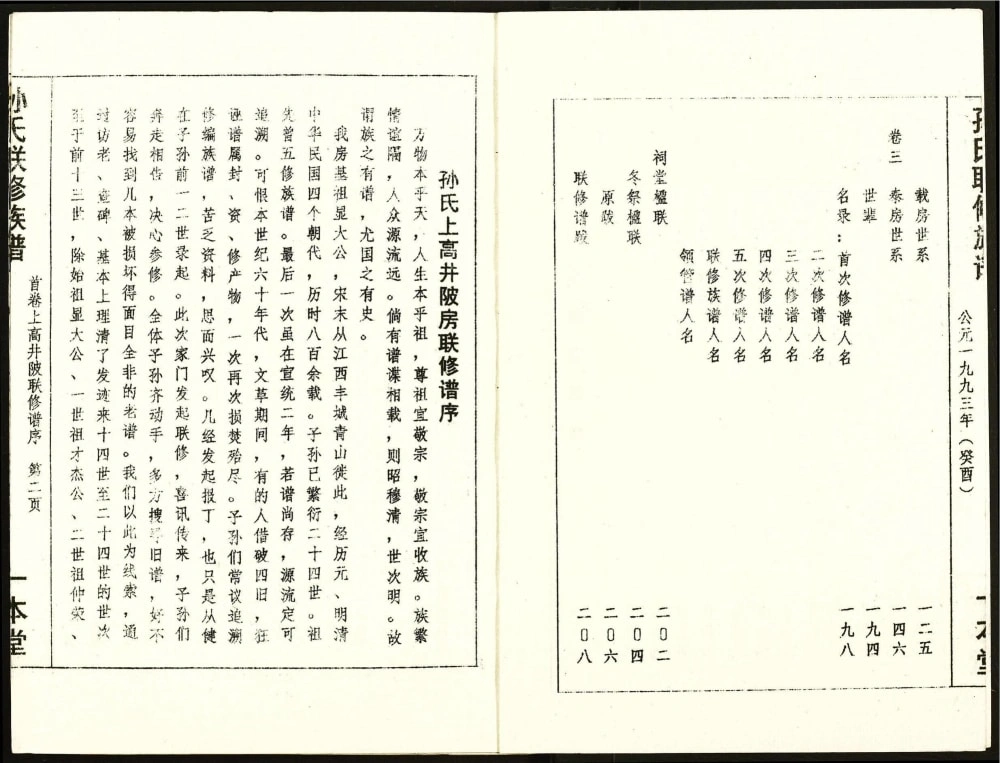 孙氏联修族谱
公元一九九三年(癸酉)
一本堂
载房世系 一二五
卷三 泰房世系 一四六
世辈 一九四
名录:首次修谱人名 一九八
二次修谱人名
三次修谱人名
四次修谱人名
五次修谱人名
联修族谱人名
领管谱人名
祠堂楹联 二〇二
冬祭楹联 二〇四
原跋 二〇六
联修谱跋 二〇八
孙氏上高井陂房联修谱序
万物本乎天,人生本乎祖,尊祖宜敬宗,敬宗宜收族。族繁
情谊隔,人众源流远。倘有谱谍相载,则昭穆清,世次明。故
谓族之有谱,尤国之有史。
我房基祖显大公,宋末从江西丰城青山徙此,经历元、明清
中华民国四个朝代,历时八百余载。子孙已繁衍二十四世。祖
先曾五修族谱。最后一次虽在宣统二年,若谱尚存,源流定可
追溯。可恨本世纪六十年代,文草期间,有的人借破四旧,狂
诬谱属封、资、修产物,一次再次损焚殆尽。子孙们常议追溯
修编族谱,苦乏资料,思而兴叹。几经发起报丁,也只是从健
在子孙前一二世录起。此次家门发起联修,喜讯传来,子孙们
奔走相告,决心参修。全体子孙齐动手,多方搜寻旧谱,好不
容易找到几本被损坏得面目全非的老谱。我们以此为线索,通
过访老、查碑、基本上理清了发迹来十四世至二十四世的世次
至于前十三世,除始祖显大公、一世祖才杰公、二世祖仲荣、
孙氏联修族谱
首卷上高井陂联修谱序 第二页
一本堂